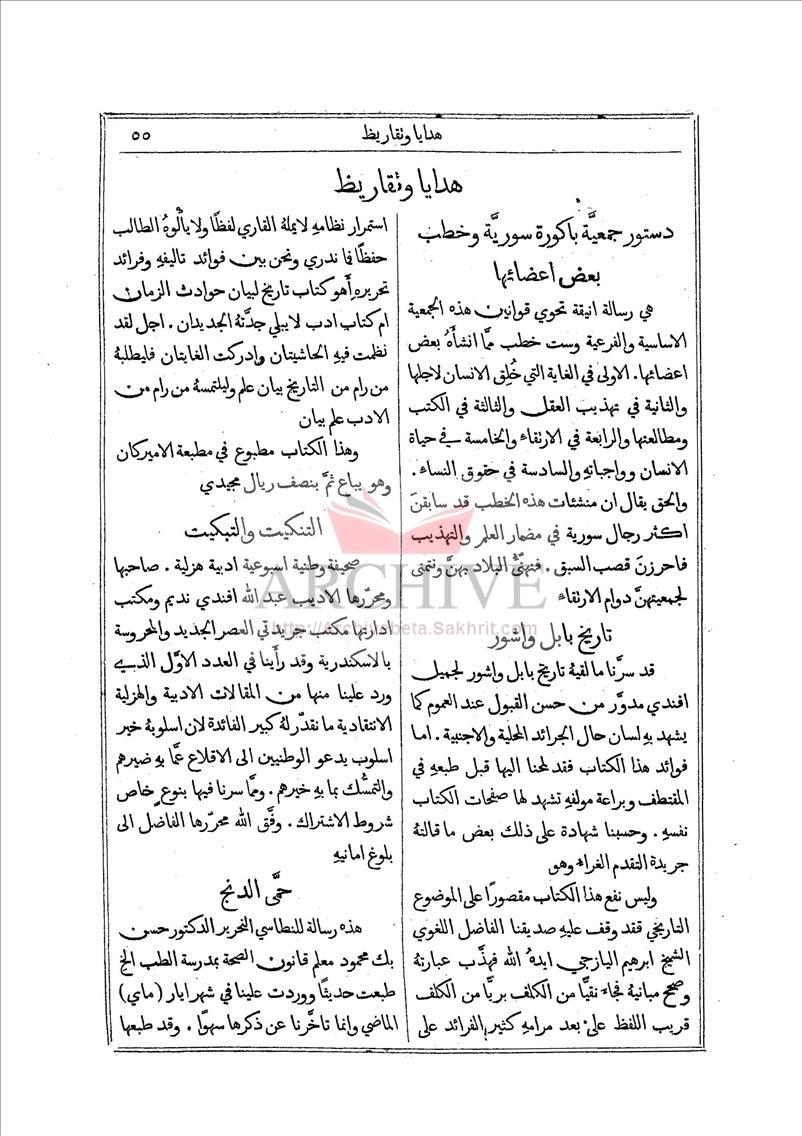 هدايا وتقاريظ
٥٥
هدايا وتقاريظ
دستور جمعيَّة باكورة سوريَّة وخطب
بعض اعضائها
هي رسالة انيقة تحوي قوانين هذه الجمعية
الاساسية والفرعية وست خطب ممَّا انشأَهُ بعض
اعضائها. الاولى في الغاية التي خُلِق الانسان لاجلها
والثانية في تهذيب العقل والثالثة في الكتب
ومطالعتها والرابعة في الارتقاء والخامسة في حياة
الانسان وواجباتهِ والسادسة في حقوق النساء .
والحق يقال ان منشئات هذه الخطب قد سابقنَ
اكثر رجال سورية في مضمار العلم والتهذيب
فاحرزنَ قصب السبق . فنهنّئُ البلاد بهنَّ ونتمنى
لجمعيتهنَّ دوام الارتقاء
تاريخ بابل واشور
قد سرَّنا ما لقيهُ تاريخ بابل واشور لجميل
افندي مدوَّر من حسن القبول عند العموم كما
يشهد بهِ لسان حال الجرائد المحلية والاجنبية . اما
فوائد هذا الكتاب فقد لمحنا اليها قبل طبعهِ في
المقتطف وبراعة مولفهِ تشهد لها صفحات الكتاب
نفسهِ . وحسبنا شهادة على ذلك بعض ما قالتهُ
جريدة التقدم الغراء وهو
وليس نفع هذا الكتاب مقصورًا على الموضوع
التاريخي فقد وقف عليهِ صديقنا الفاضل اللغوي
الشيخ ابرهيم اليازجي ايدهُ الله فهذَّب عبارتهُ
وصحح مبانيهُ فجاء نقيًّا من الكلف بريًّا من الكلف
قريب اللفظ على بعد مرامهِ كثير الفرائد على
استمرار نظامهِ لا يملهُ القاري لفظًا ولا يألوهُ الطالب
حفظًا فما ندري ونحن بين فوائد تاليفهِ وفرائد
تحريرهِ أهو كتاب تاريخ لبيان حوادث الزمان
ام كتاب ادب لا يبلي جدَّتهُ الجديدان . اجل لقد
نظمت فيهِ الحاشيتان وادركت الغايتان فليطلبهُ
من رام من التاريخ بيان علم وليلتمسهُ من رام من
الادب علم بيان
وهذا الكتاب مطبوع في مطبعة الاميركان
وهو يباع ثمَّ بنصف ريال مجيدي
التنكيت والتبكيت
صحيفة وطنية اسبوعية ادبية هزلية . صاحبها
ومحرّرها الاديب عبد الله افندي نديم ومكتب
ادارتها مكتب جريدتي العصر الجديد والمحروسة
بالاسكندرية وقد رأَينا في العدد الاوَّل الذي
ورد علينا منها من المقالات الادبية والهزلية
الانتقادية ما نقدّر لهُ كبير الفائدة لان اسلوبهُ خير
اسلوب يدعو الوطنيين الى الاقلاع عمَّا بهِ ضيرهم
والتمسُّك بما بهِ خيرهم . وممَّا سرنا فيها بنوع خاص
شروط الاشتراك . وفَّق الله محرّرها الفاضل الى
بلوغ امانيهِ
حمَّى الدنج
هذه رسالة للنطاسي النحرير الدكتور حسن
بك محمود معلم قانون الصحة بمدرسة الطب الخ
طبعت حديثًا ووردت علينا في شهر ايار (ماي)
الماضي وانما تاخَّرنا عن ذكرها سهوًا . وقد طبعها
ARCHIVE
http://Archivebeta.Sakhrit.com